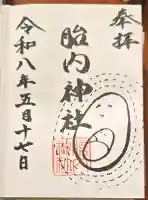 奉拝
胎内神社
令和八年五月十七日